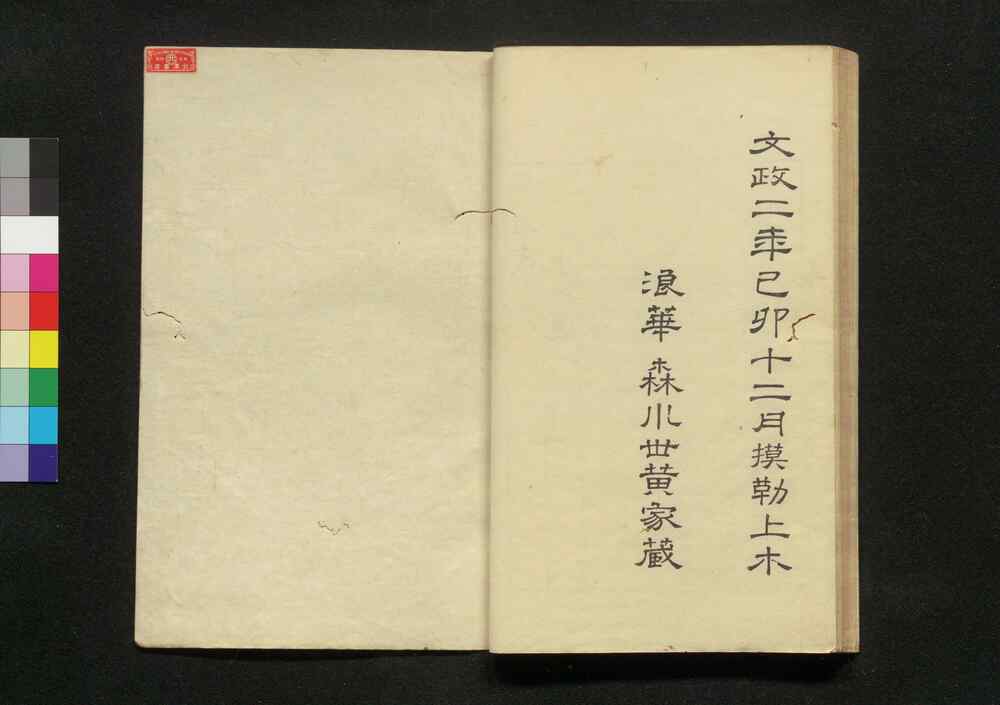 文政二年己卯十二月摸勒上木
浪華 森川世黄家蔵